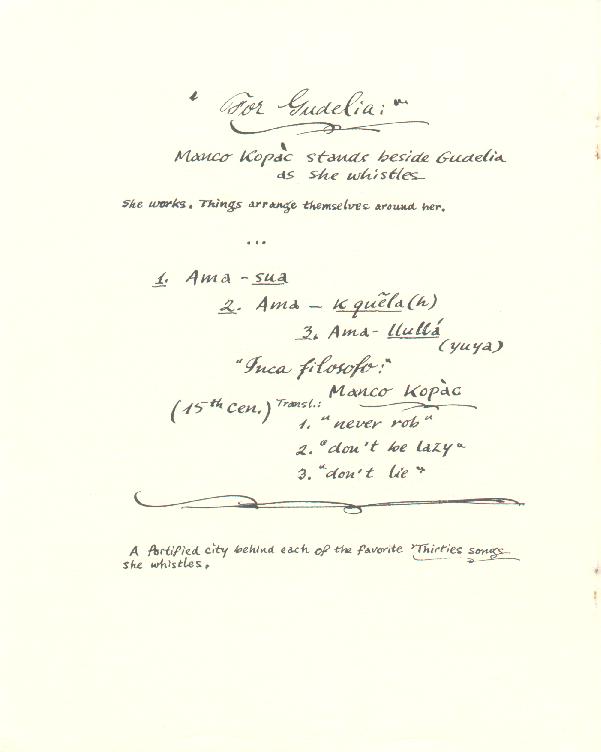 "For Gudelia:"
Manco Kopàc stands beside Gudelia
as she whistles
She works. Things arrange themselves around her.
...
1. Ama - sua
2. Ama - K quẽla(h)
3. Ama- llullá
(yuya)
"Inca filosofo:"
Manco Kopàc
(15th cen.) Transl.:
1. "never rob"
2. "don't be lazy"
3. "don't lie"
A fortified city behind each of the favorite 'Thirties songs
she whistles.